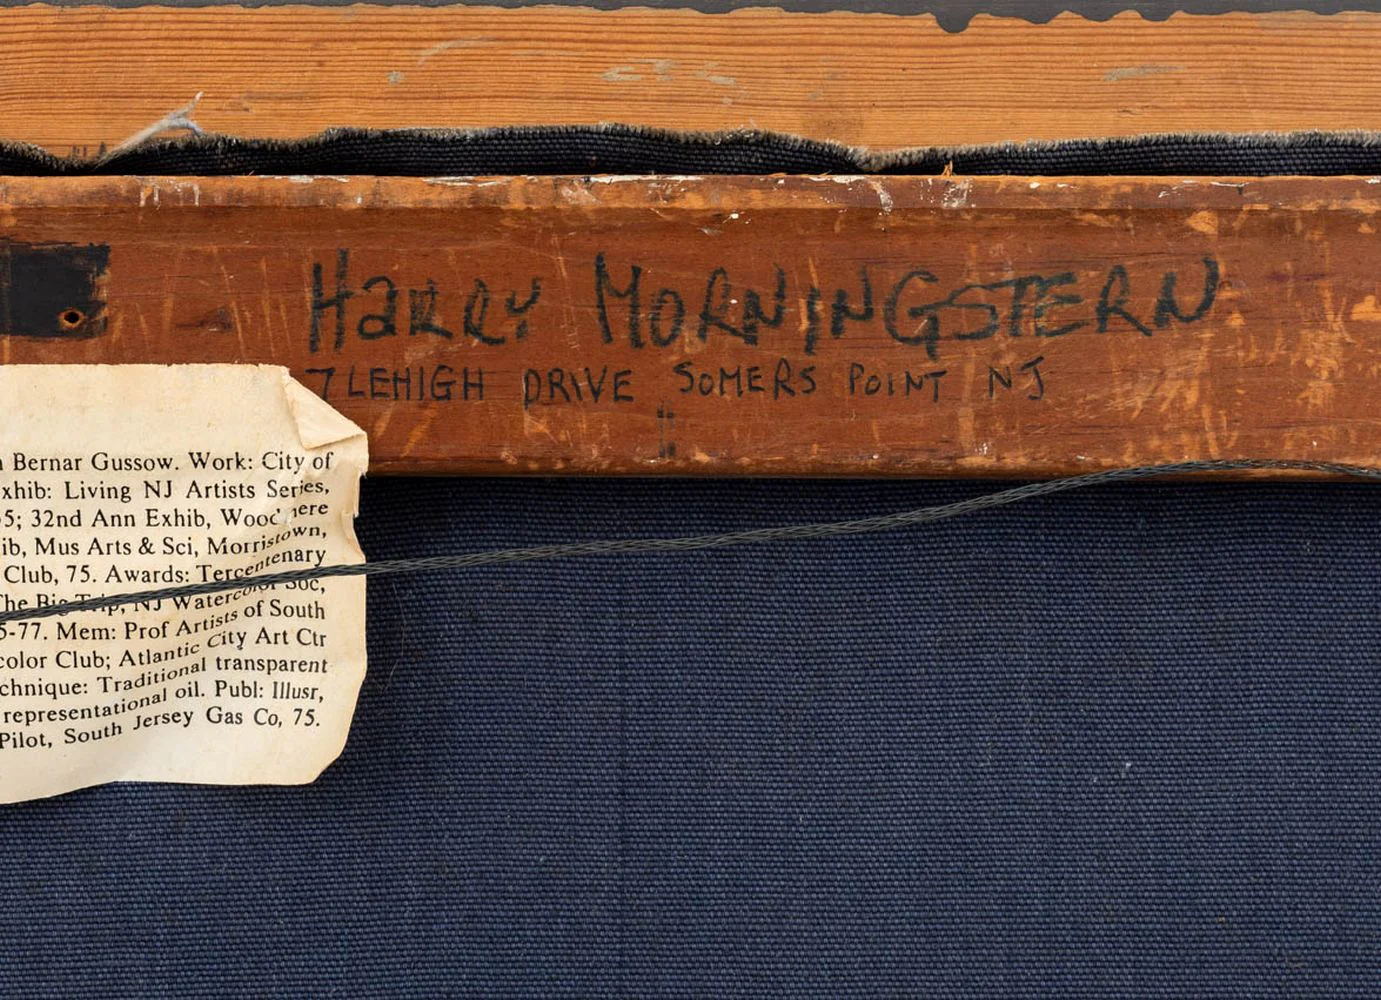 Harry Morningstern
7 LEHIGH DRIVE SOMERS POINT NJ
Bernar Gussow. Work: City of
xhib: Living NJ Artists Series,
5; 32nd Ann Exhib,
ib, Mus Arts & Sci, Morristown,
Club, 75. Awards: Tercentenary
The Big Trip, NJ Watercolor Soc,
5-77. Mem: Prof Artists of South
color Club; Atlantic City Art Ctr
chnique: Traditional transparent
representational oil. Publ: Illusr,
Pilot, South Jersey Gas Co, 75.